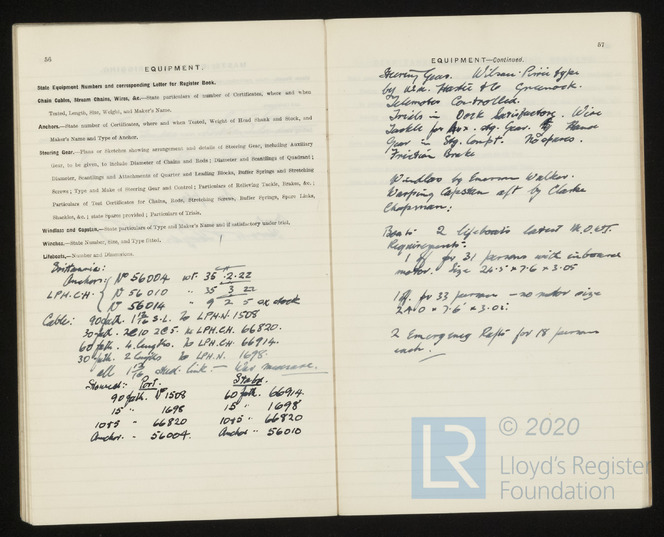 56
EQUIPMENT.
State Equipment Numbers and corresponding Letter for Register Book.
Chain Cables, Stream Chains, Wires, &c.—State particulars of number of Certificates, where and when
Tested, Length, Size, Weight, and Maker's Name.
Anchors.—State number of Certificates, where and when Tested, Weight of Head Shank and Stock, and
Maker's Name and Type of Anchor.
Steering Gear.—Plans or Sketches showing arrangement and details of Steering Gear, including Auxiliary
Gear, to be given, to include Diameter of Chains and Rods; Diameter and Scantlings of Quadrant;
Diameter, Scantlings and Attachments of Quarter and Leading Blocks, Buffer Springs and Stretching
Screws; Type and Make of Steering Gear and Control; Particulars of Relieving Tackle, Brakes, &c.;
Particulars of Test Certificates for Chains, Rods, Stretching Screws, Buffer Springs, Spare Links,
Shackles, &c.; state Spares provided; Particulars of Trials.
Windlass and Capstan.—State particulars of Type and Maker's Name and if satisfactory under trial.
Winches.—State Number, Size, and Type fitted.
Lifeboats.—Number and Dimensions.
Brittannia:
Anchors: No 56004 wt. 35 . 2 . 22
LPH.C.H. No 56010 " 35 3 22
No 56014 " 9 2 5 ex stock
Cable: 90 fath. 1 9/16 S.L. to LPH.N. 1508
30 fath. to LPH.CH. 66820.
60 fath. 4 lengths. to LPH.CH. 66914.
30 fath. 2 lengths to LPH.N. 1698.
all 1 9/16 stud link — War measure.
Stowed: Port. Starbd.
90 fath. No 1508 60 fath. 66914
15 " 1698 15 " 1698
105 - 66820 105 " 66820
Anchor. - 56004. Anchor " 56010
57
EQUIPMENT—Continued.
Steering Gear. Wilson-Pirrie type
by Hastie & Co Greenock.
Telemotor Controlled.
Trials in Dock Satisfactory. Wire
Tackle for Aux. stg. gear. Hand
Gear in Stg. Compt. No spares.
Friction Brake
Windlass by Emerson Walker.
Warping Capstan aft by Clarke
Chapman:
Boats 2 lifeboats latest M.O.W.T.
Requirements.
1 off for 31 persons with inboard
motor. Size 24.5 x 7.6 x 3.05
1 off for 33 persons — no motor size
24.0 x 7.6 x 3.0:
2 Emergency Rafts for 18 persons
each.
© 2020
LR
Lloyd's Register
Foundation